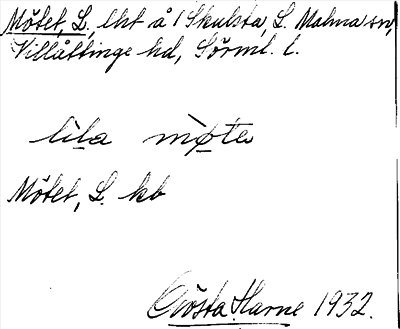 Mötet, L., lht å 1 Skulsta, L. Malma sn,
Villåttinge hd, Sörml. l.
lìla mø̀tə
Mötet, L. kb
Gösta Harne 1932.